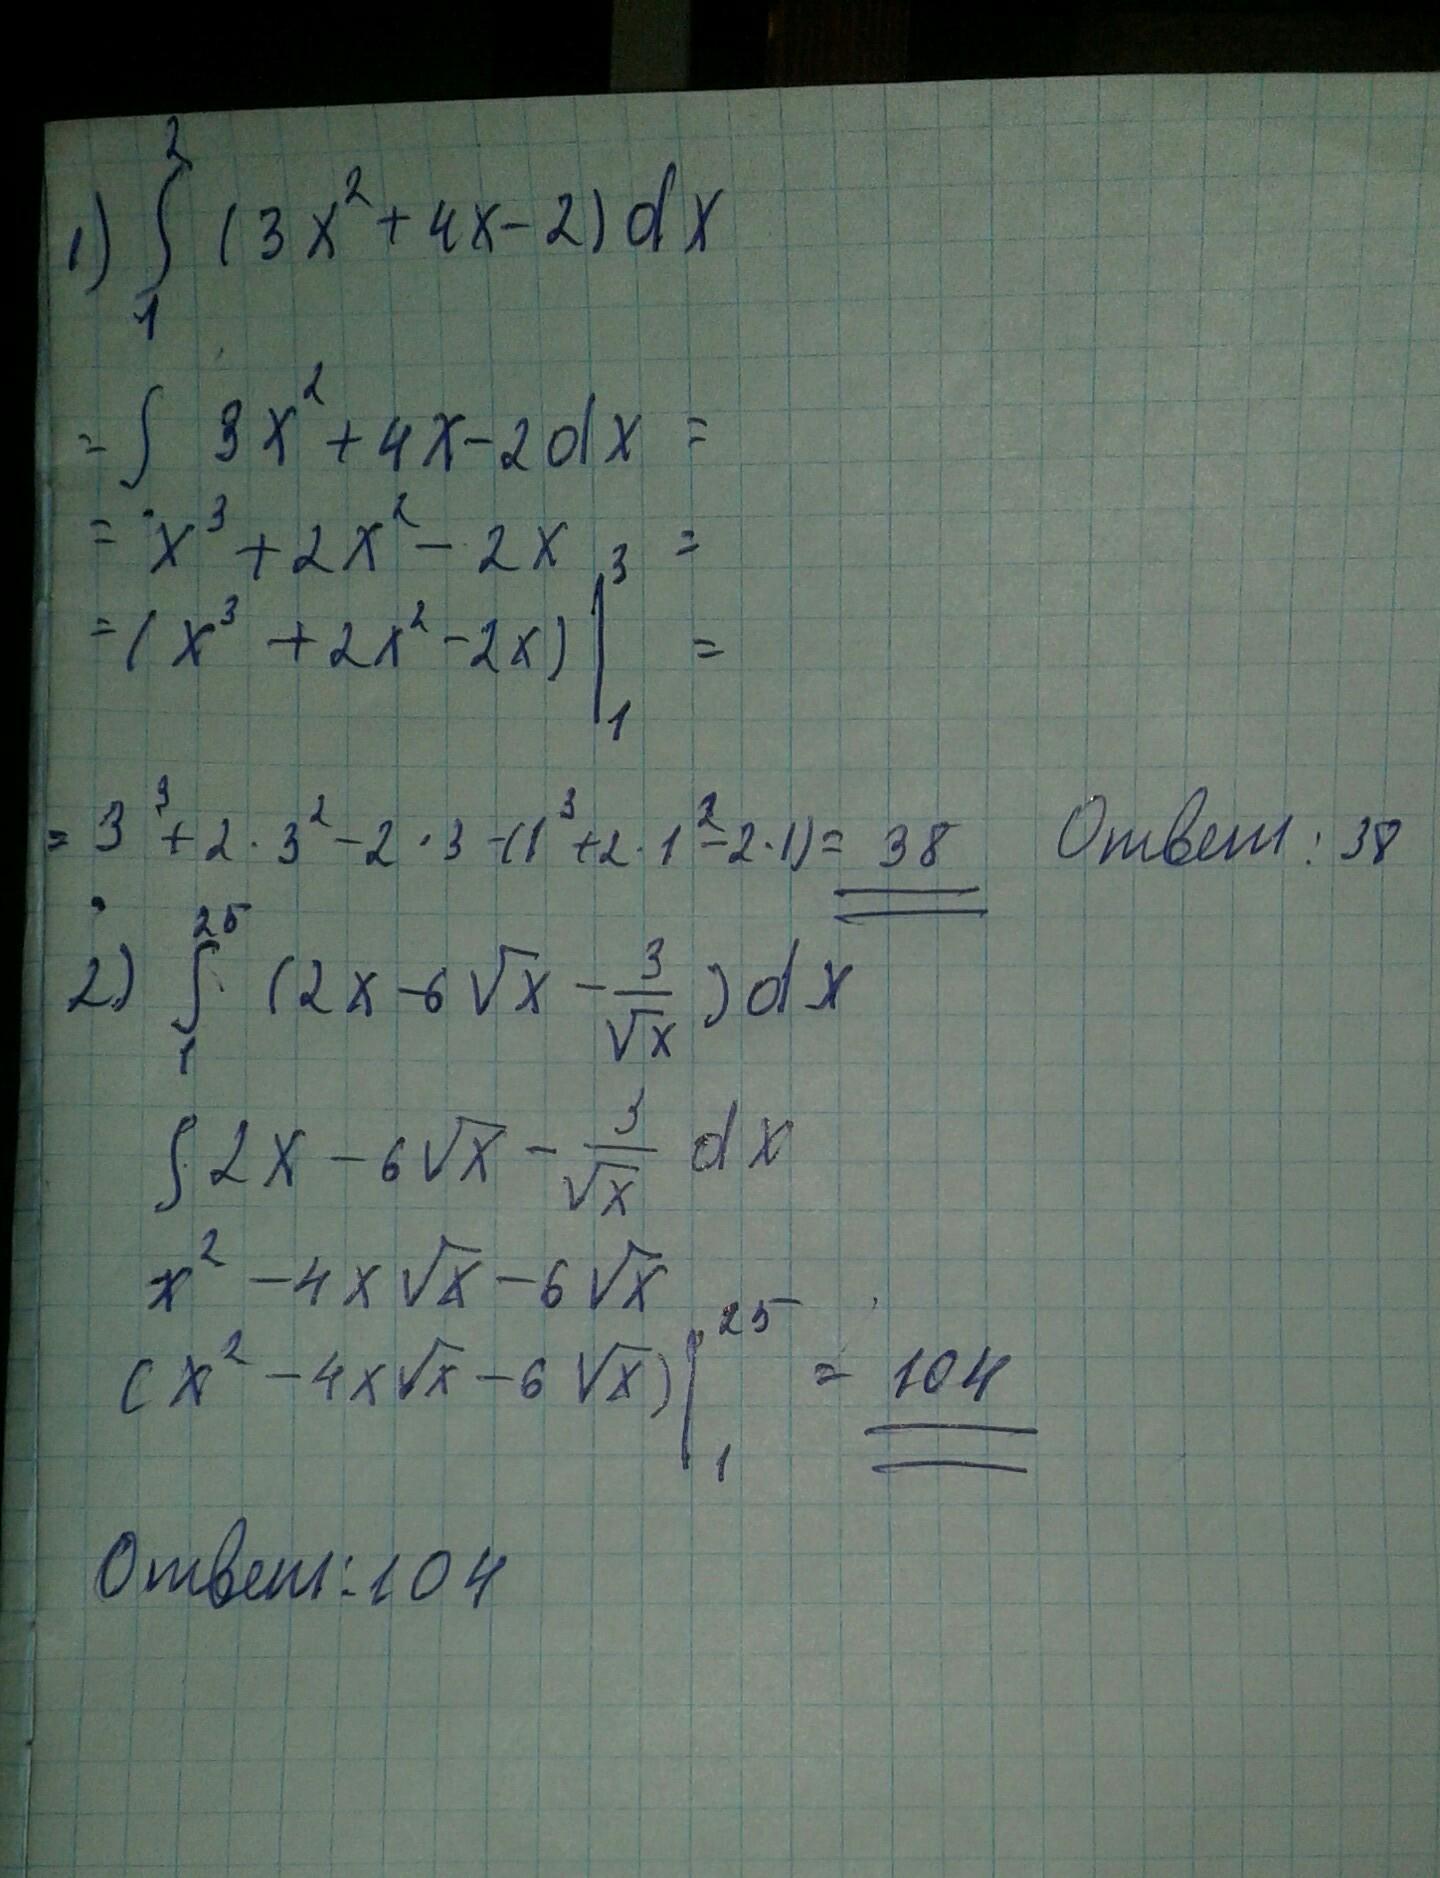 1) ∫₁² (3x² + 4x - 2) dx
= ∫ 3x² + 4x - 2 dx =
= x³ + 2x² - 2x =
= (x³ + 2x² - 2x) |₁³ =
= 3³ + 2 · 3² - 2 · 3 - (1³ + 2 · 1² - 2 · 1) = 38 Ответ: 38
2) ∫₁²⁵ (2x - 6√x - 3/√x) dx
∫ 2x - 6√x - 3/√x dx
x² - 4x√x - 6√x
(x² - 4x√x - 6√x) |₁²⁵ = 104
Ответ: 104